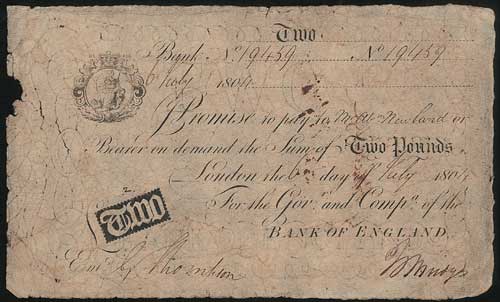 Two
Bank No. 19459 No. 19459
6 July 1804
I Promise to pay to Mr. Ab. Newland or
Bearer on demand the Sum of Two Pounds
London the 6 day of July 1804
For the Gov.r and Comp.a of the
TWO
BANK OF ENGLAND.
Ent.d Thompson